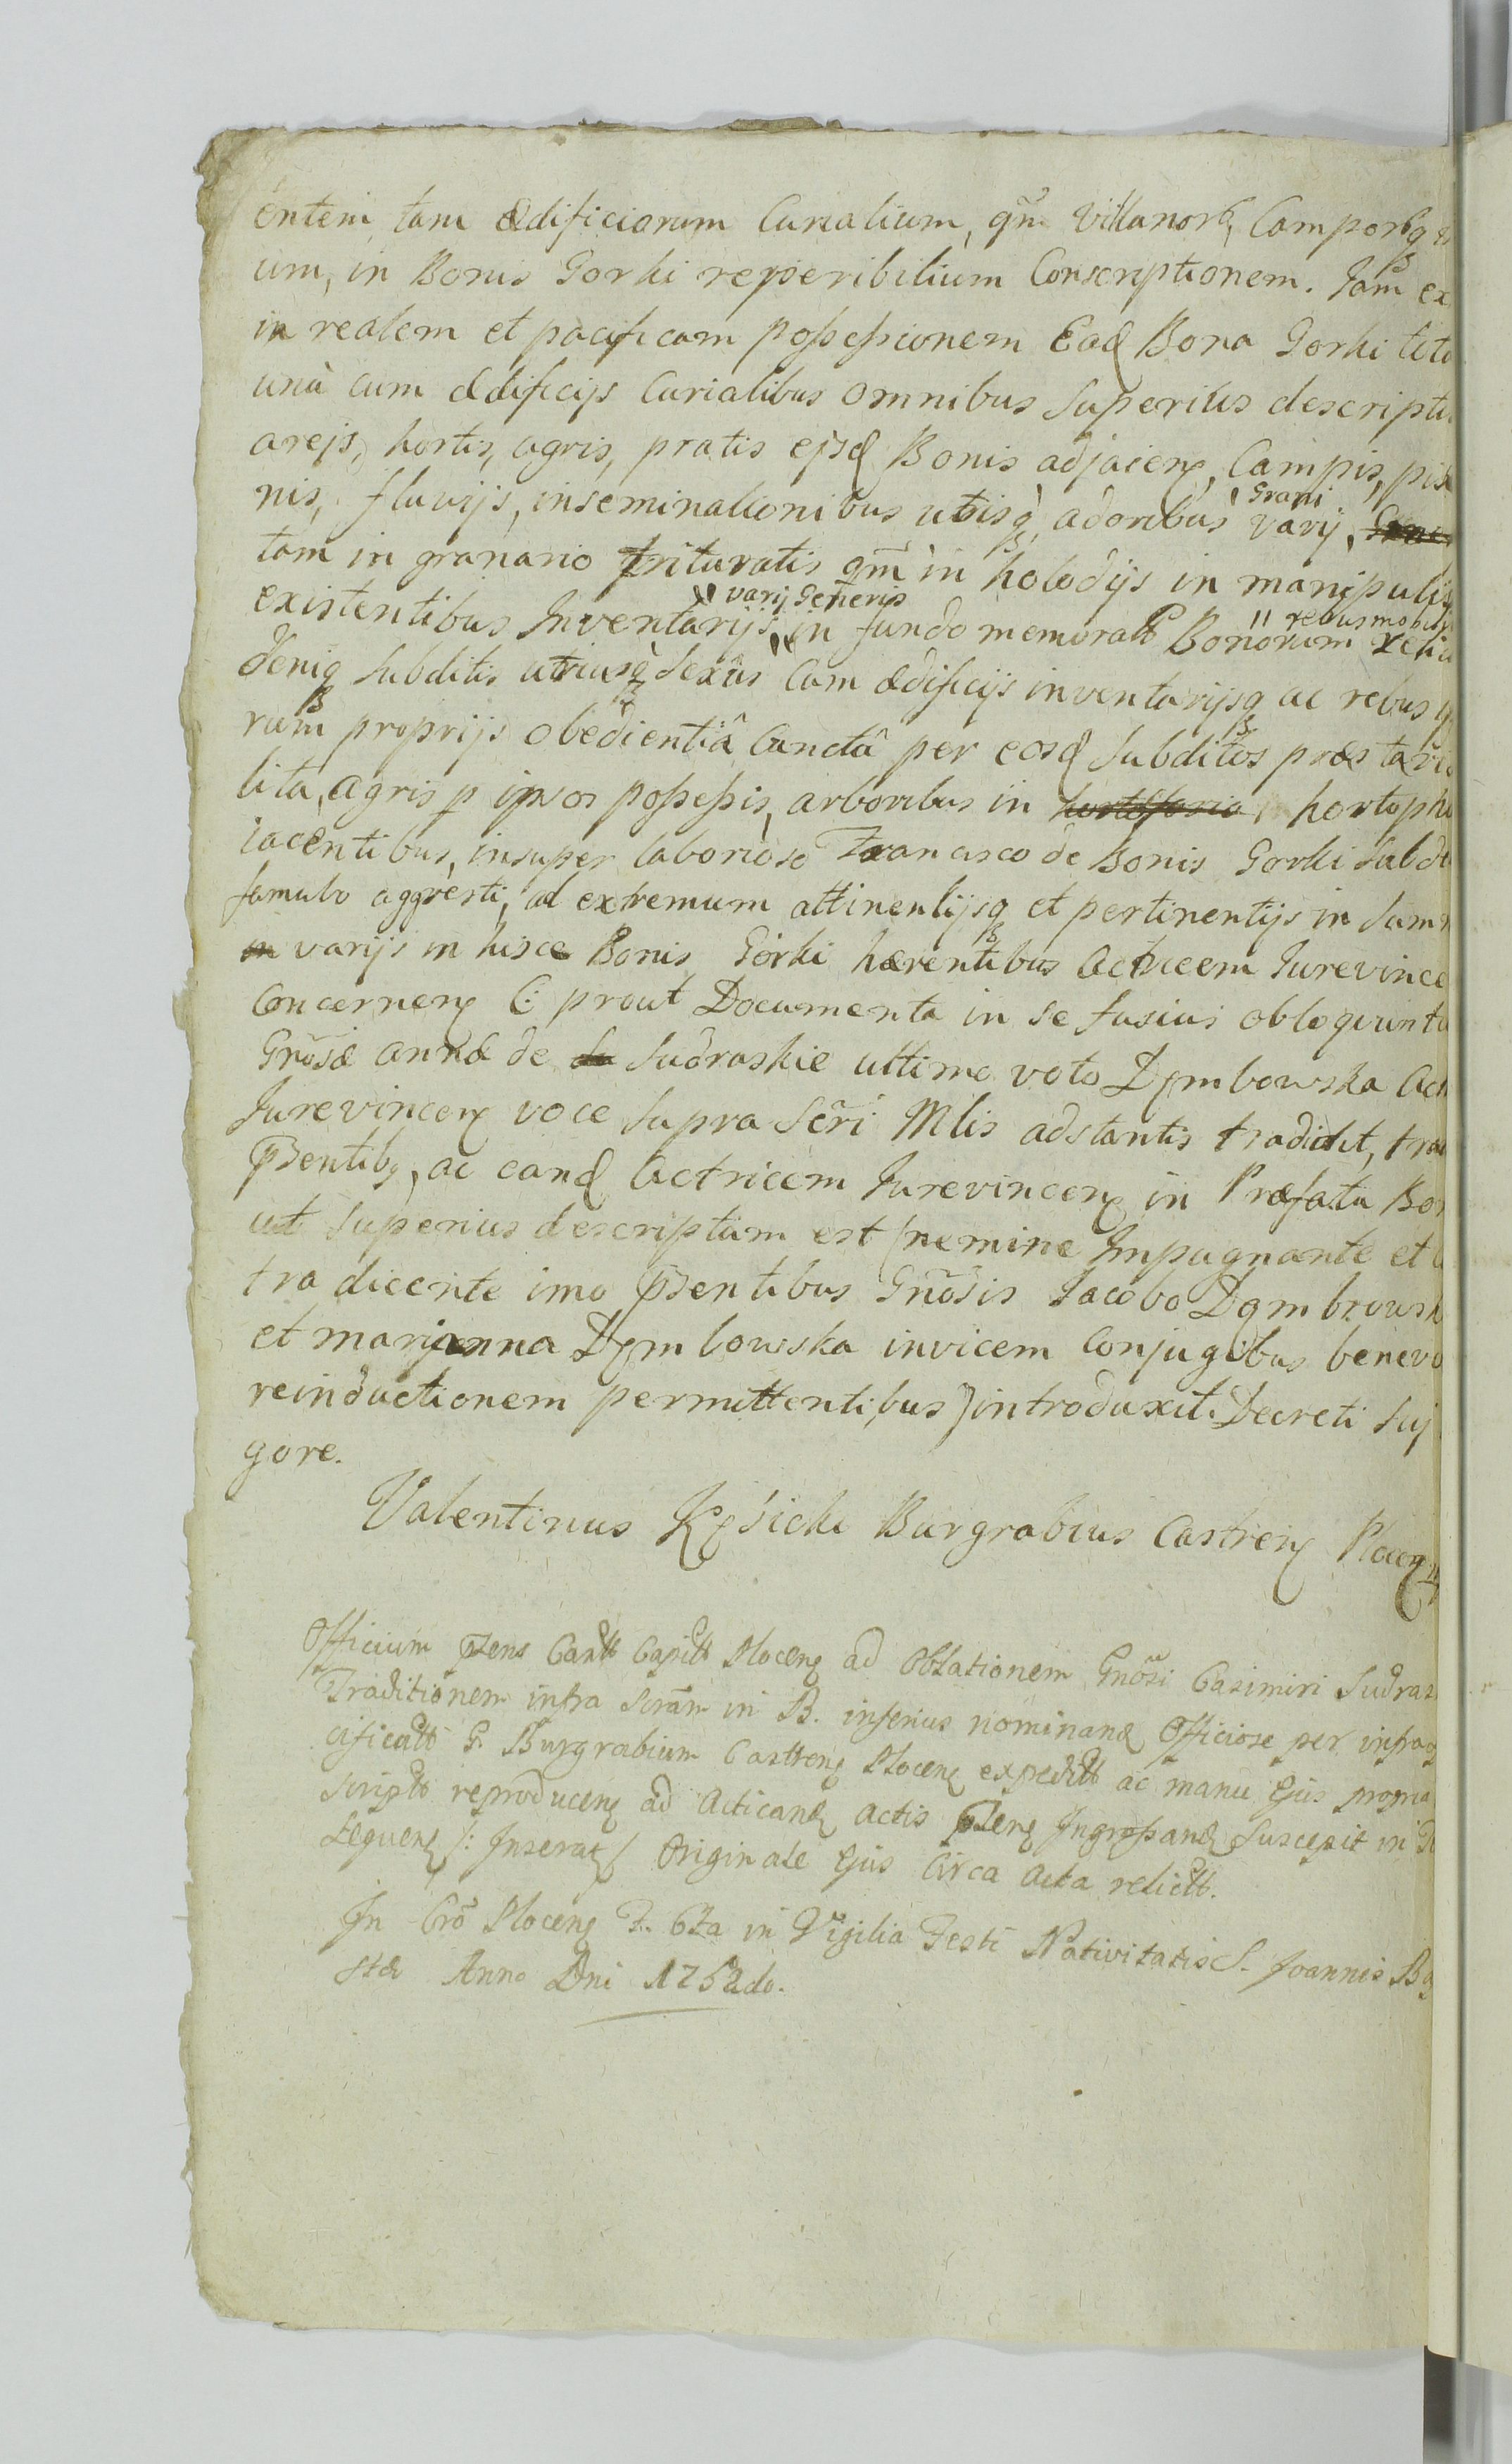 entem, tam ædificiorum Curialium, qm̃ Villanorꝫ, Camporꝫq
um, in Bonis Gorki reperibilium Conscriptionem. Jam ex
in realem et pacificam poßeßionem Ead Bona Gorki
unà cum ædificijs Curialibus omnibus superius descripti
arejs, hortis, agris, pratis ejsd Bonis adjacen, Campis,
nis, fluvijs, inseminationibus utisq, adoribus Grani varij,
tam in granario trituratis qm̃ in holodijs in manipulis
existentibus Inventarijs, varij Generis in fundo memoratt Bonorum rebus mobil
deniq subditis utriusq Sexûs Cum ædificijs inventarijsq ac rebus
rum proprijs obedientiâ Cunctâ per eosd Subditos
lita, agris p ipsos poßeßis, arboribus in hortop
iacentibus, insuper laborioso Francisco de Bonis Gorki Subd
famulo aggresti, ad extremum attinentijsq et pertinentijs in
varijs in hisce Bonis Gorki hærentibus Actricem Jurevince
Concernen C: prout Documenta in se fusius obloquunt
Gnosæ annæ de Sudraskie ultimo voto Dęmbowska Act
Jurevincen voce supra Scri Mlis adstantis tradidit,
pñsentibꝫ, ac eand Actricem Jurevincen in Præfata Bon
uti superius descriptum est (nemine Impugnante et
tradicente imo pñsentibus Gnosis Jacobo Dąmbrowsk
et marijanna Dęmbowska invicem Conjugibus benevo
reinductionem permittentibus) introduxit. Decreti suj
gore.
Valentinus Kęsicki Burgrabius Castren Plocen
Officium pñsens Castr Capitt Plocen ad Oblationem Gnosi Casimiri Sudras
Traditionem infra scram in B. inferius nominand Officiose per
cificatt G. Burgrabium Castren Plocen expeditt ac manu Ejus propria
scriptt reproducen ad Acticand Actis pñsen Ingroßand Suscepit in
sequen /: Inserat / Originale Ejus Circa Acta relictt.
In Cro Plocen F. 6ta in Vigilia Festi Nativitatis S. Joannis
stæ Anno Dni 1752do.